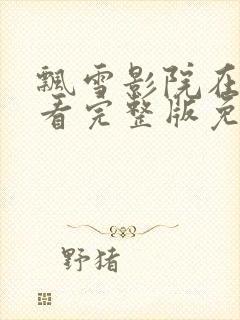 飘雪影院在
看完整版免
野猪